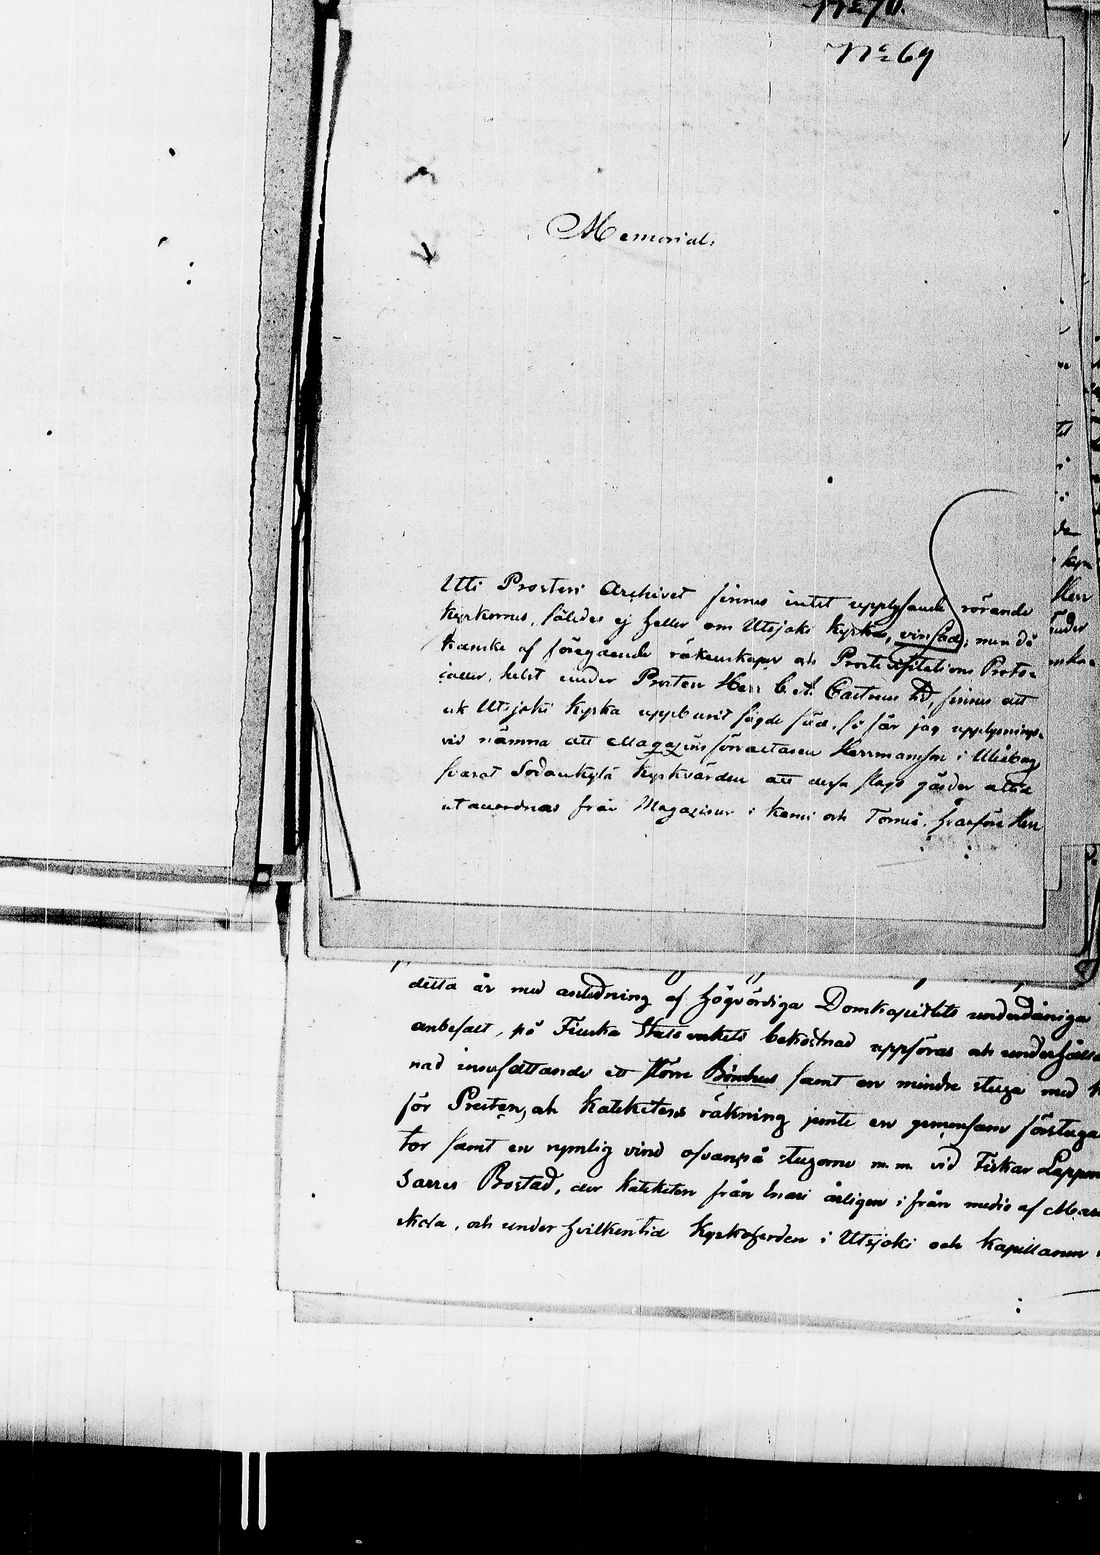 No 70.
No 69
Memorial.
Uti Prosteri Archivet finnes intet upplysande rörande
Kyrkornes, således ej heller om Utsjoki Kyrka, vinsäd; men då
kanske af föregående räkenskaper och Prostvisitations Proto-
coller, helst under Prosten Herr C. A. tid, finnes att
ock Utsjoki Kyrka uppburit sagde säd, så får jag upplysnings-
vis nämna att Magazins förvaltaren Herrmansson i Uleåborg
svarat Sodankylä Kyrkvärden att dessa slags gärder altid
utanordnas från Magazinen i Kemi och Torneå, hvarföre Herr
detta är med anledning af Högvördiga Domkapitlets underdåniga
anbefalt, på Finska Statsverkets bekostnad uppföras och underhålla
nad innefattande ett större Bönehus samt en mindre stuga med
för Presten, och Kateketens räkning jemte en gemensam förstuga
tor samt en rymlig vind ofvanpå stugorne m. m. vid Fiskar Lappen
Sarres Bostad, der Kateketen från Enari årligen ifrån medio af
skola, och under hvilken tid Kyrkoherden i Utsjoki och Kapellanen